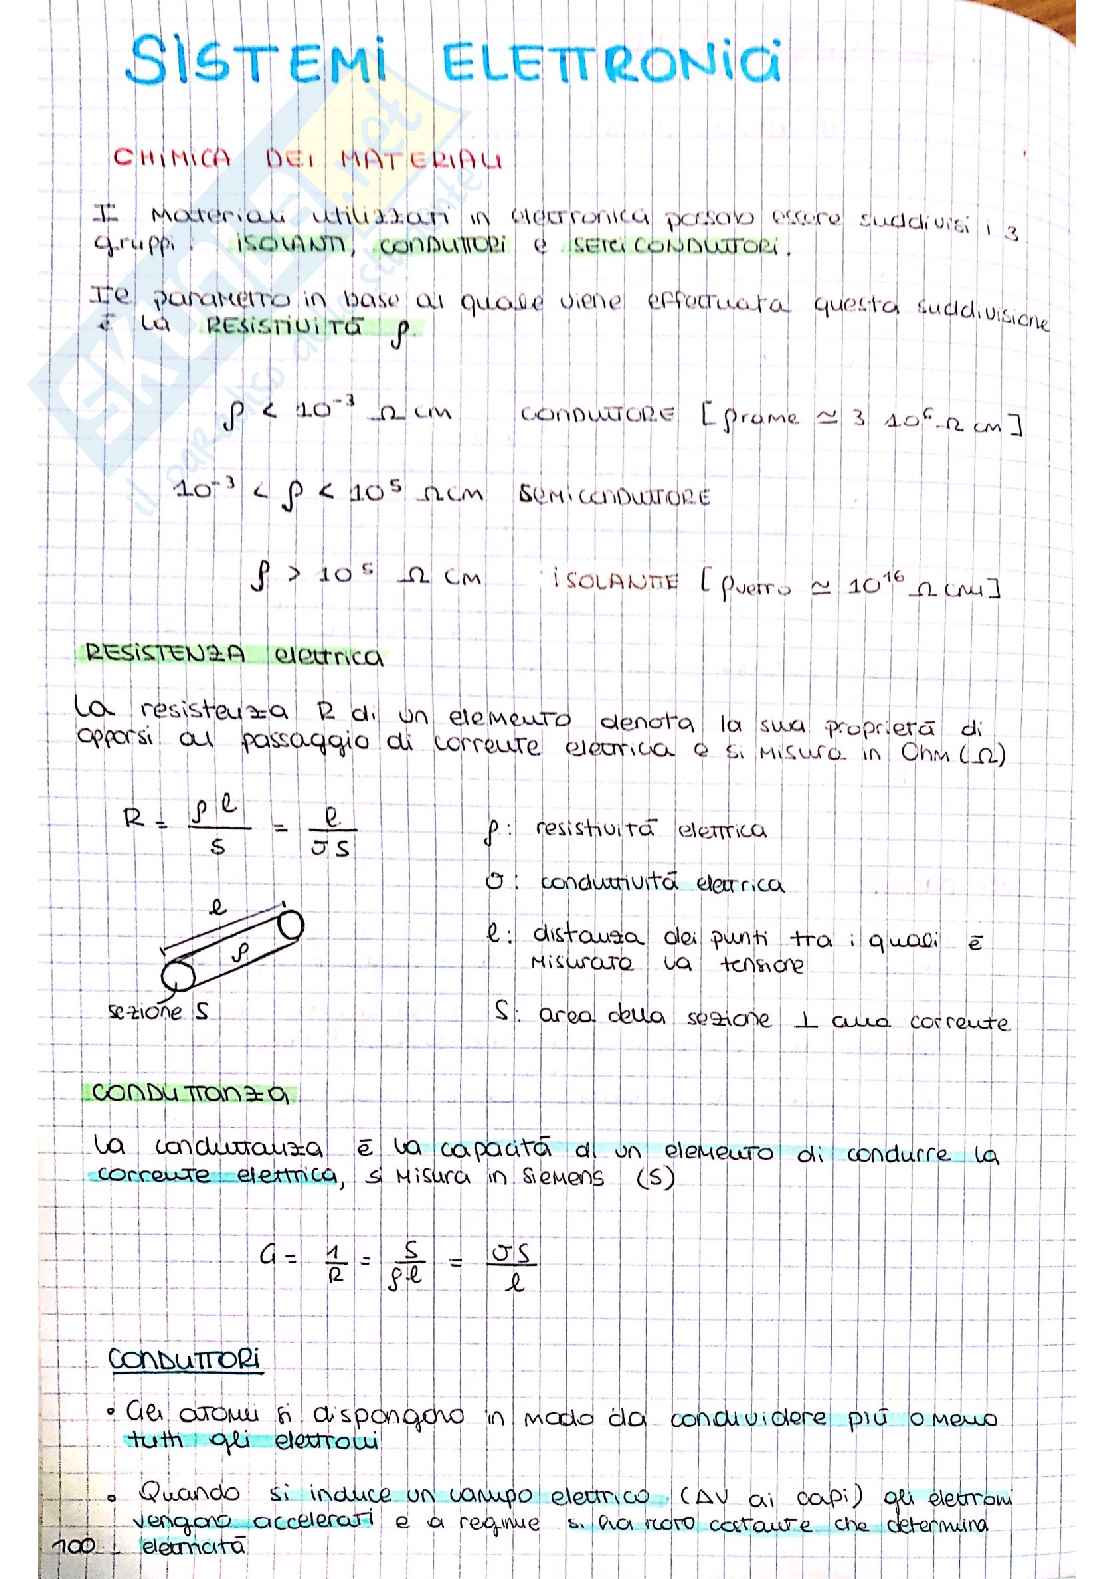 SISTEMI ELETTRONICI
CHIMICA DEI MATERIALI
I Materiali utilizzati in elettronica possono essere suddivisi i 3
gruppi: ISOLANTI, CONDUTTORI e SEMICONDUTTORI.
Il parametro in base al quale viene effettuata questa suddivisione
è la RESISTIVITÀ ρ.
ρ < 10⁻³ Ω cm CONDUTTORE [ρrame ≃ 3 10⁶ Ω cm]
10⁻³ < ρ < 10⁵ Ωcm SEMICONDUTTORE
ρ > 10⁵ Ω cm ISOLANTE [ρvetro ≃ 10¹⁶ Ω cm]
RESISTENZA elettrica
La resistenza R di un elemento denota la sua proprietà di
opporsi al passaggio di corrente elettrica e si misura in Ohm (Ω)
R = ρ l / S = l / σ S
ρ: resistività elettrica
σ: conduttività elettrica
l: distanza dei punti tra i quali è
misurata la tensione
S: area della sezione ⊥ alla corrente
l
ρ
sezione S
CONDUTTANZA
La conduttanza è la capacità di un elemento di condurre la
corrente elettrica, si misura in Siemens (S)
G = 1/R = S/ρ·l = σS/l
CONDUTTORI
• Gli atomi si dispongono in modo da condividere più o meno
tutti gli elettroni
• Quando si induce un campo elettrico (ΔV ai capi) gli elettroni
vengono accelerati e a regime si ha moto costante che determina
elettricità
100
SKUOLA.net